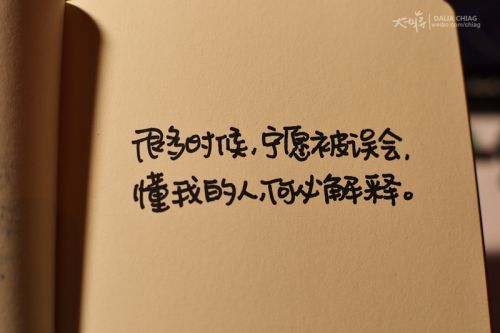 DALIA CHIAG
weibo.com/chiag
很多时候,宁愿被误会,
懂我的人,何必解释。